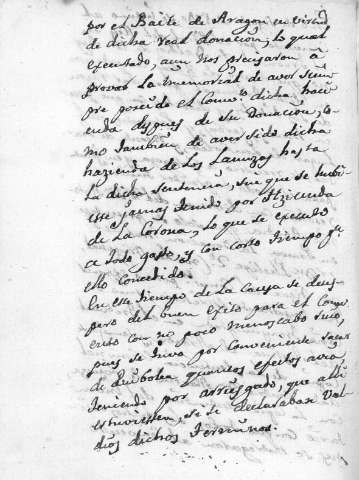 por el Baile de Aragon en virtud
de dicha real donacion, lo qual
executado, aun nos precisaron à
provar la inmemorial de aver siem
pre poseido el Convto dicha haci
enda despues de su Donacion, co
mo tambien de aver sido dicha
hazienda de los Lanuzas hasta
la dicha sentencia, sin que se hubi
esse jamas tenido por Hazienda
de la Corona, lo que se executó
a todo gasto, y con corto tiempo pa
ello concedido.
En este tiempo de la Causa se deses
peró del buen exito para el Conv
ento con no poco menoscabo suio,
pues se tuvo por conveniente sacar
de quantos efectos avia,
teniendo por arriesgado, que alli
estuviessen, si se declaraban Val
dios dichos Terminos.